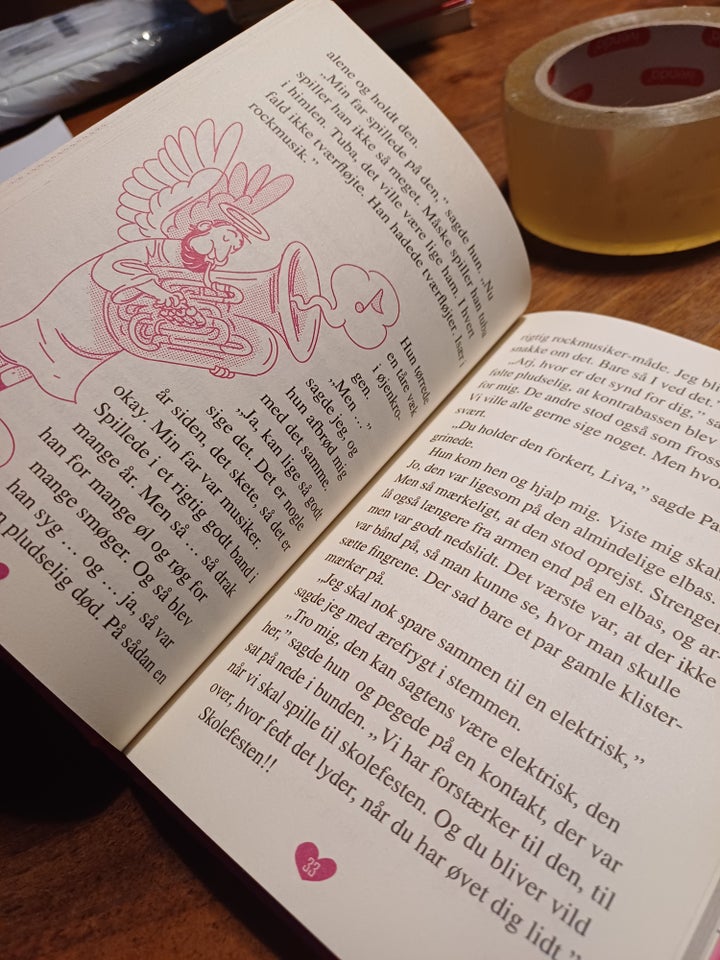 alene og holdt den.
„Min far spillede på den,” sagde hun. „Nu
spiller han ikke så meget. Måske spiller han tuba
i himlen. Tuba, det ville være lige ham. I hvert
fald ikke tværfløjte. Han hadede tværfløjter. Især i
rockmusik.”
Hun tørrede
en tåre væk
i øjenkro-
gen.
„Men …”
sagde jeg, og
hun afbrød mig
med det samme.
„Ja, kan lige så godt
sige det. Det er nogle
år siden, det skete, så det er
okay. Min far var musiker.
Spillede i et rigtig godt band i
mange år. Men så … så drak
han for mange øl og røg for
mange smøger. Og så blev
han syg … og … ja, så var
pludselig død. På sådan en
rigtig rockmusiker-måde. Jeg
snakke om det. Bare så I ved det.
„Arj, hvor er det synd for dig,”
følte pludselig, at kontrabassen blev
for mig. De andre stod også som
Vi ville alle gerne sige noget. Men
svært.
„Du holder den forkert, Liva,” sagde
grinede.
Hun kom hen og hjalp mig. Viste mig
Jo, den var ligesom på den almindelige elbas.
Men så mærkeligt, at den stod oprejst.
lå også længere fra armen end på en elbas, og ar-
men var godt nedslidt. Det værste var, at der ikke
var bånd på, så man kunne se, hvor man skulle
sætte fingrene. Der sad bare et par gamle klister-
mærker på.
„Jeg skal nok spare sammen til en elektrisk,”
sagde jeg med ærefrygt i stemmen.
„Tro mig, den kan sagtens være elektrisk, den
her,” sagde hun og pegede på en kontakt, der var
sat på nede i bunden. „Vi har forstærker til den, til
når vi skal spille til skolefesten. Og du bliver vild
over, hvor fedt det lyder, når du har øvet dig lidt.”
Skolefesten!!
33